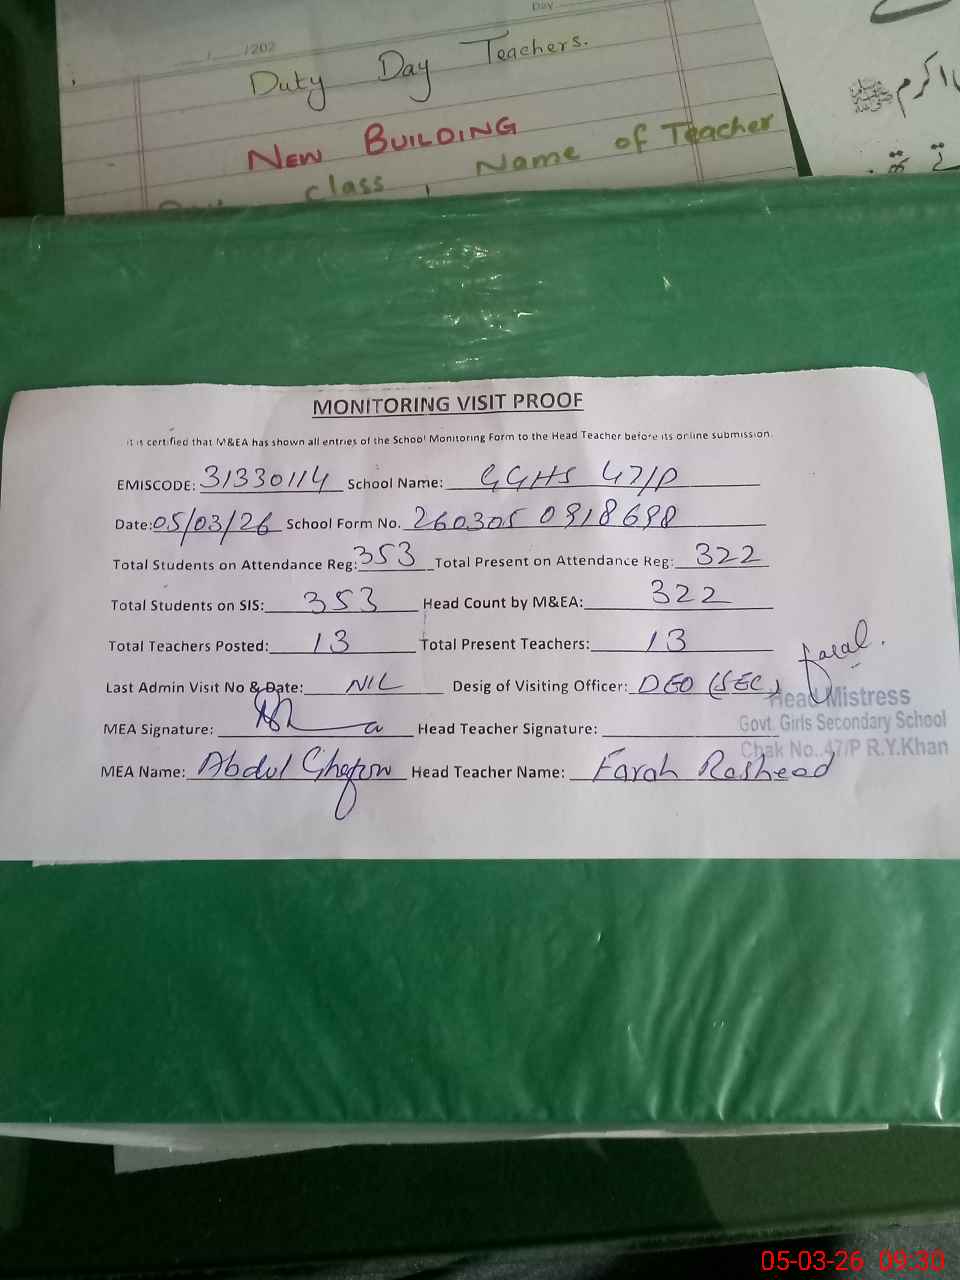 Day
/ /202
Duty Day Teachers.
NEW BUILDING
class Name of Teacher
اکرم ﷺ
MONITORING VISIT PROOF
It is certified that M&EA has shown all entries of the School Monitoring Form to the Head Teacher before its online submission.
EMISCODE: 31330114 School Name: GGHS 47/P
Date: 05/03/26 School Form No. 260305 0918698
Total Students on Attendance Reg: 353 Total Present on Attendance Reg: 322
Total Students on SIS: 353 Head Count by M&EA: 322
Total Teachers Posted: 13 Total Present Teachers: 13
Last Admin Visit No & Date: NIL Desig of Visiting Officer: DEO (SEC)
Head Mistress
Govt. Girls Secondary School
Chak No. 47/P R.Y.Khan
MEA Signature: Head Teacher Signature:
MEA Name: Abdul Ghafoor Head Teacher Name: Farah Rasheed
05-03-26 09:30